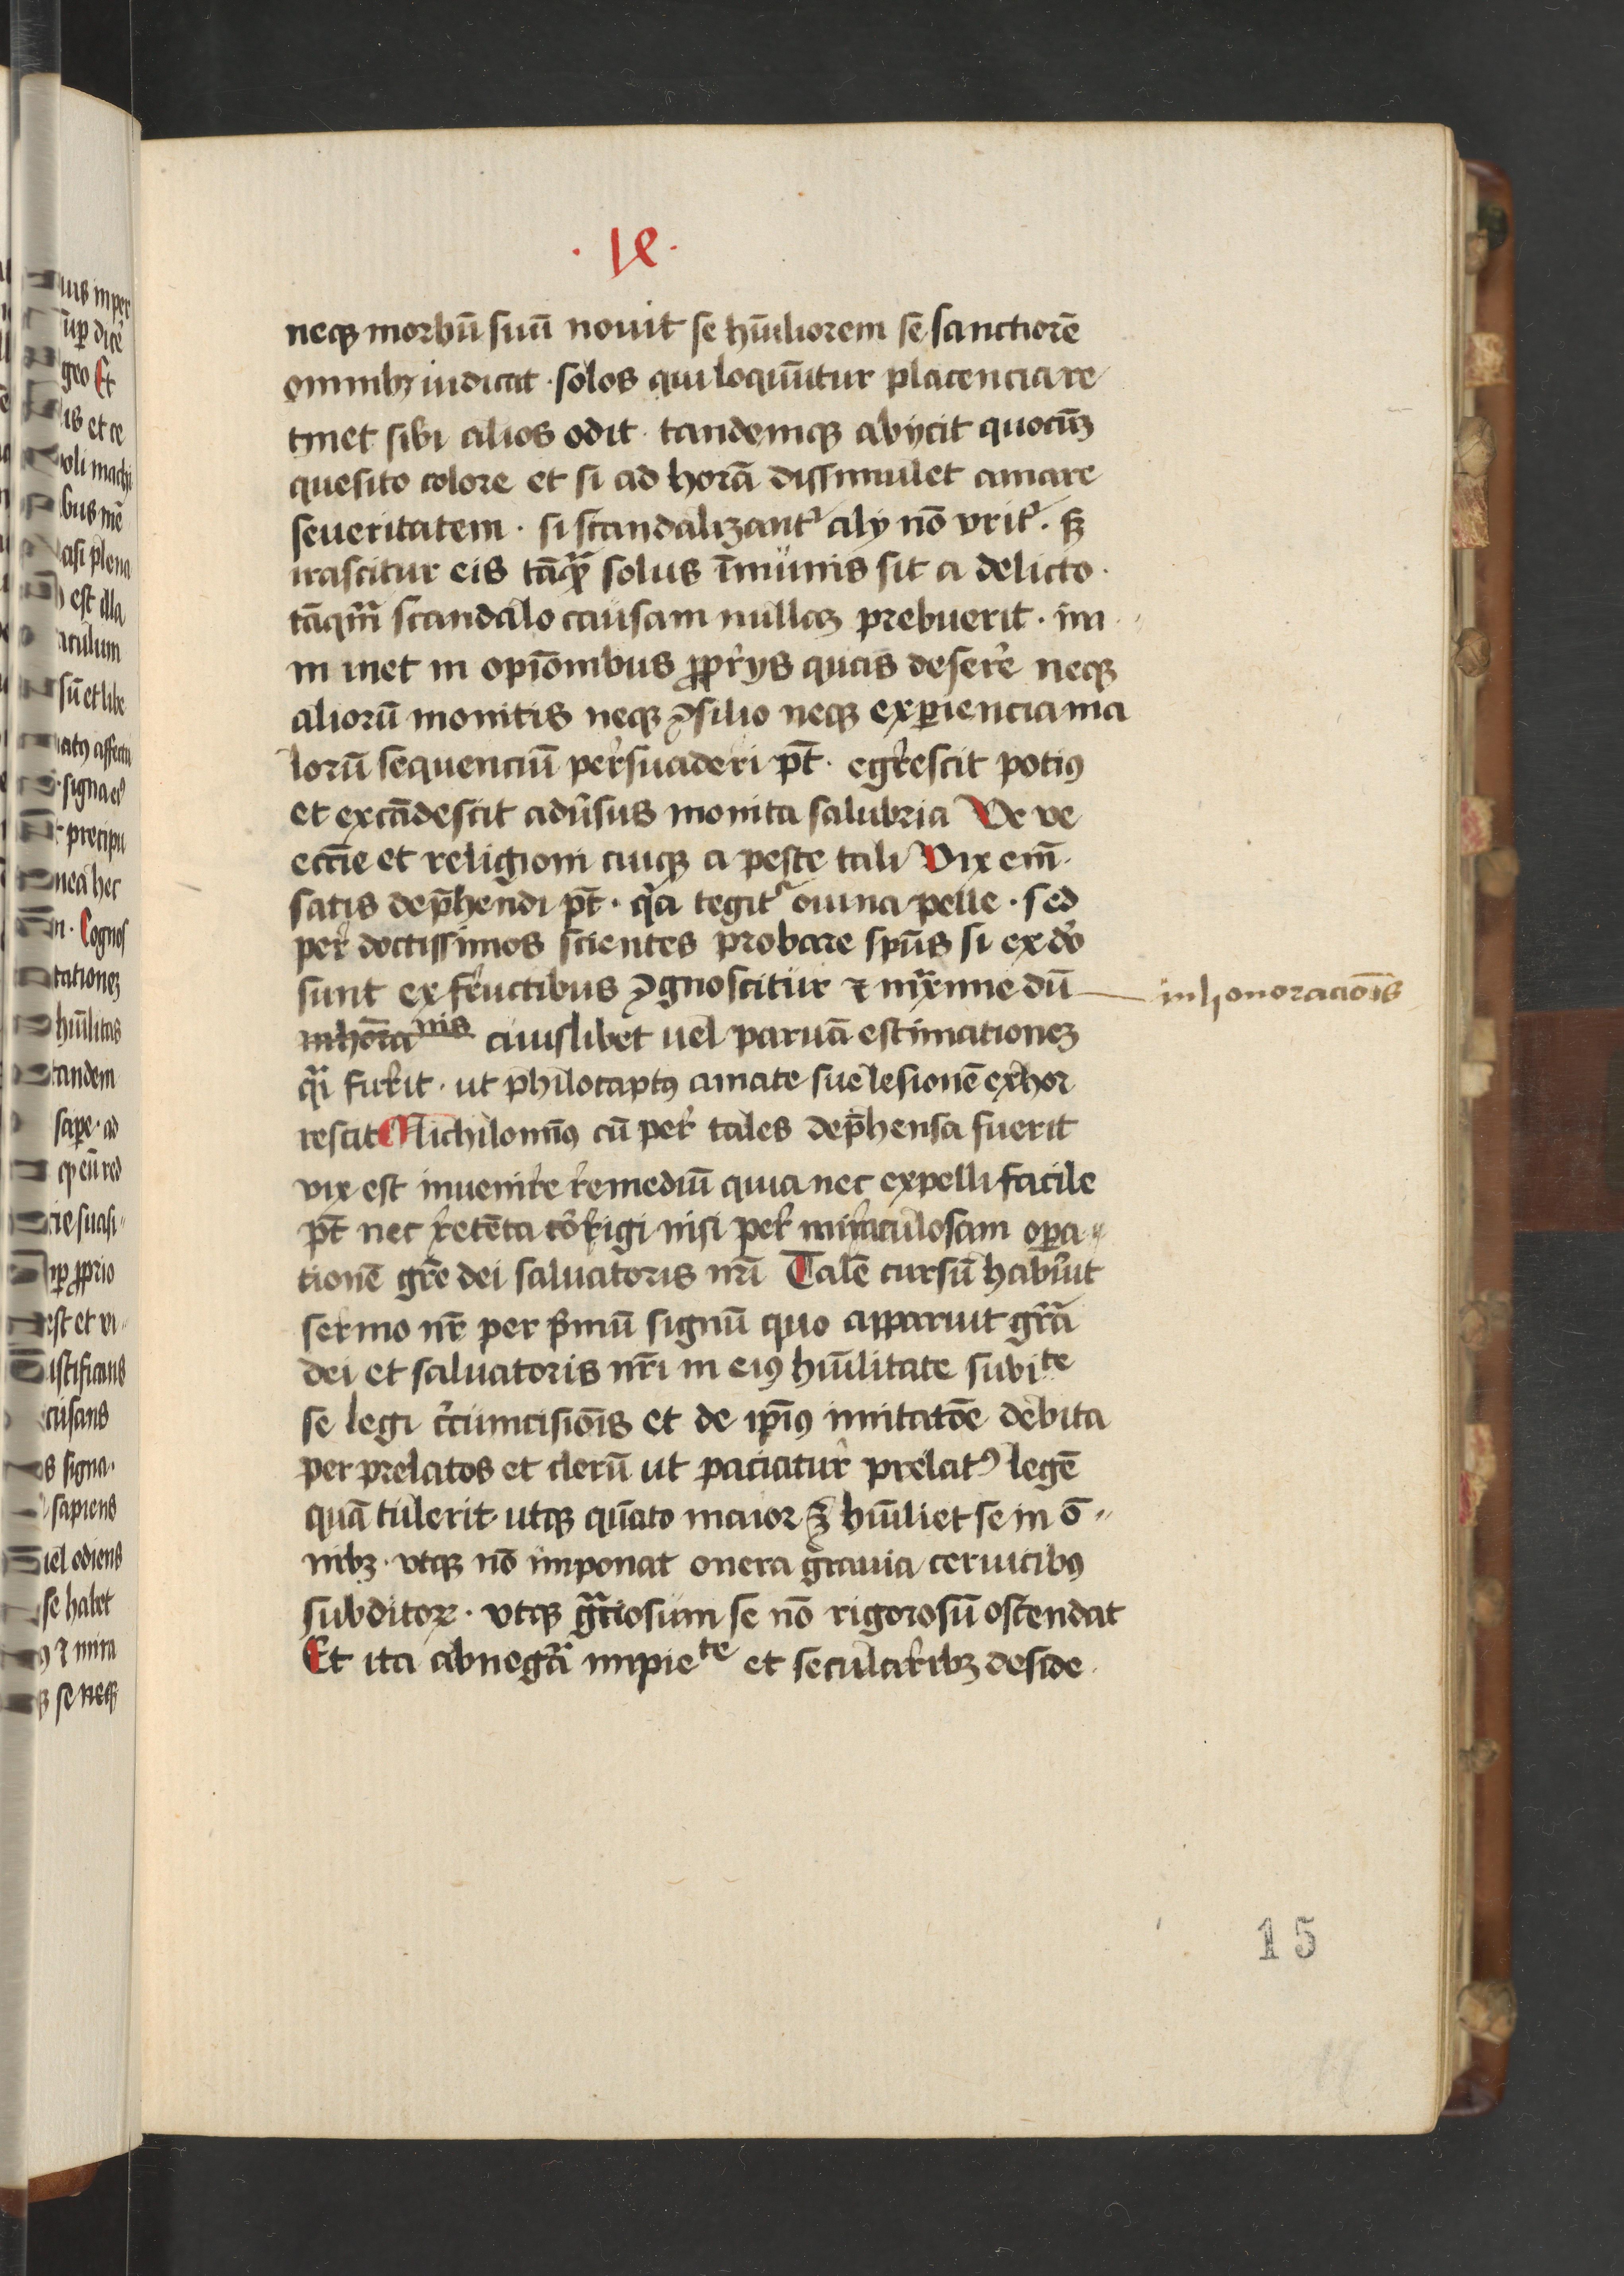 · ⅼⅇ ·
neqꝫ morbū suū nouit se hūiliorem se sanctiorē
omnibꝫ iudicat · solos qui loquūtur placencia re
tinet sibi alios odit · tandemqꝫ abycit quocūqꝫ
quesito colore et si ad horā dissimulet amare
seueritatem · si scandalizantᷣ alij nō vritᷣ · sꝫ
irascitur eis tāqᷓ solus īmunis sit a delicto ·
tāqm̄ scandalo causam nullaꝫ prebuerit · in
ninet in opīonibus ꝓprijs quas deserˀe neqꝫ
aliorū monitis neqꝫ ꝯsilio neqꝫ experiencia ma
lorū sequenciū persuaderi pt̄ · egrescit potiꝰ
et excādescit aduˀsus monita salubria Ve ve
eccīe et religioni cuiqꝫ a peste tali Vix em̄
satis dep̄hendi pt̄ · qᷓa tegitᷣ ouina pelle · sed
per doctissimos scientes probare sp̄us si ex dō
sunt ex fructibus ꝯgnoscitur ⁊ mᷓxime dū
inhōranis cuiuslibet uel paruā estimationeꝫ
qᷓi furit · ut philocaptꝰ amate sue lesionē exhor
rescit Nichilominꝰ cū per tales dep̄hensa fuerit
vix est inuenire remediū quia nec expelli facile
pt̄ nec retēta corrigi nisi per miraculosam opera
tionē gr̄e dei saluatoris nr̄i Talē cursū habuˀit
sermo nr̄ per pͥmū signū quo apparuit gr̄a
dei et saluatoris nr̄i in eiꝰ hūilitate subite
se legi cͥcumcisiōis et de ip̄iꝰ imitatōe debita
per prelatos et clerū ut paciatur prelatꝰ legē
quā tulerit · utqꝫ quāto maior ē hūiliet se in ō
nibꝫ · vtqꝫ nō imponat onera grauia ceruicibꝰ
subditoꝝ · vtqꝫ grᷓciosum se nō rigorosū ostendat
Et ita abnegᷓa impiete et secularibꝫ deside
inhonoraciōis
15